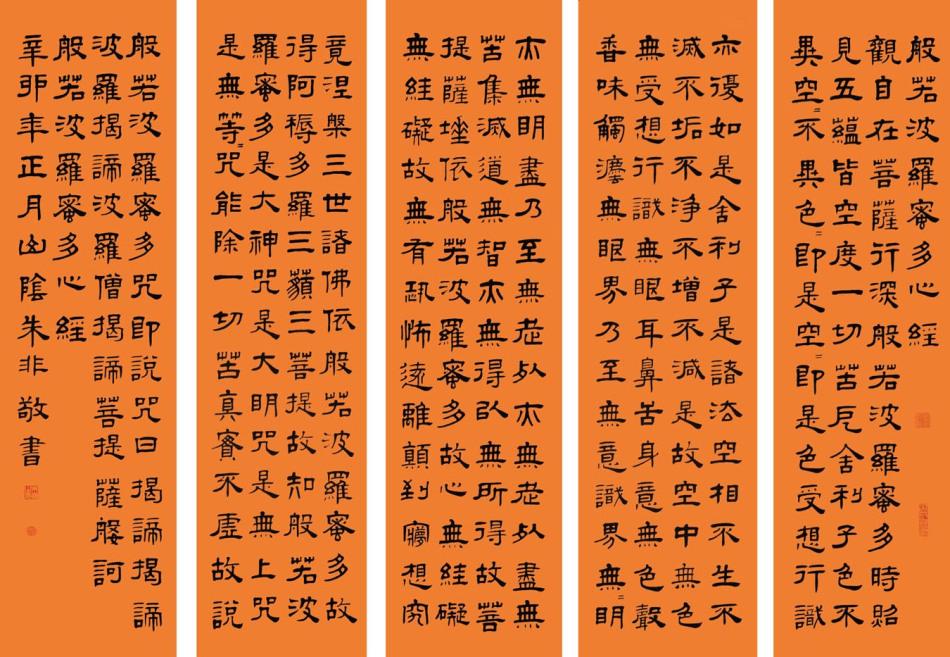 般若波羅蜜多心經
觀自在菩薩行深般若波羅蜜多時照
見五蘊皆空度一切苦厄舍利子色不
異空〻不異色〻即是空〻即是色受想行識
亦復如是舍利子是諸法空相不生不
滅不垢不淨不增不減是故空中無色
無受想行識無眼耳鼻舌身意無色聲
香味觸法無眼界乃至無意識界無〻明
亦無明盡乃至無老死亦無老死盡無
苦集滅道無智亦無得以無所得故菩
提薩埵依般若波羅蜜多故心無絓礙
無絓礙故無有恐怖遠離顛到夢想究
竟涅槃三世諸佛依般若波羅蜜多故
得阿耨多羅三藐三菩提故知般若波
羅蜜多是大神咒是大明咒是無上咒
是無等〻咒能除一切苦真實不虛故說
般若波羅蜜多咒即說咒曰揭諦揭諦
波羅揭諦波羅僧揭諦菩提薩婆訶
般若波羅蜜多心經
辛卯年正月山陰朱非敬書